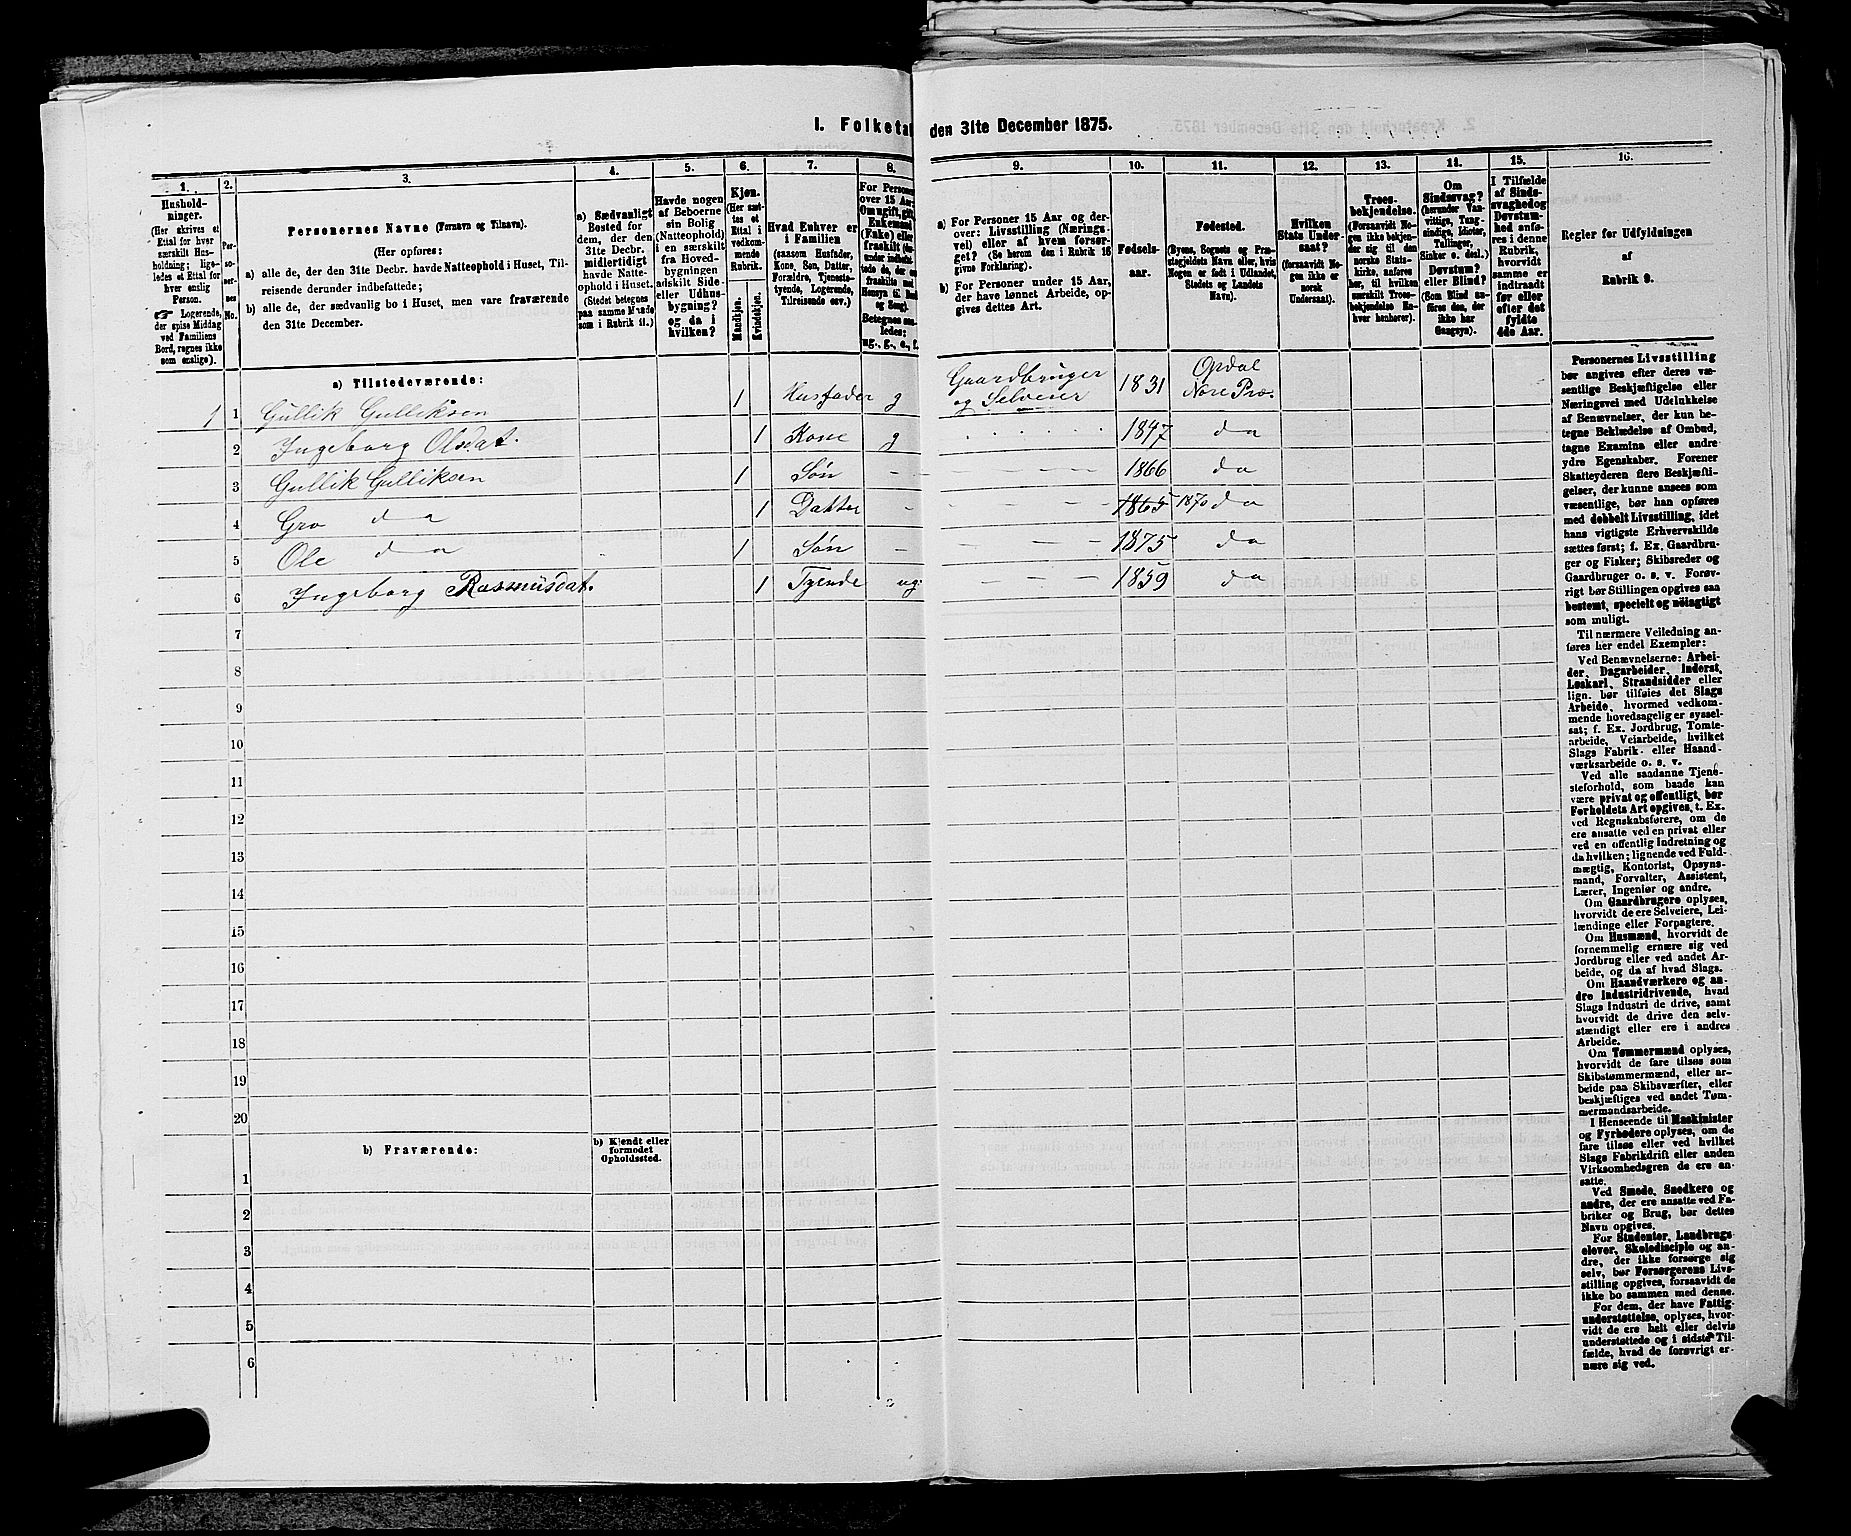 I. Folketal den 31te December 1875.
1.
2.
3.
4.
5.
6.
7.
8.
9.
10.
11.
12.
13.
14.
15.
16.
Hushold-
ninger.
(Her skrives et
Ettal for hver
særskilt Hus-
holdning; lige-
ledes et Ettal for
hver enlig
Person.
☛ Logerende,
der spise Middag
ved Familiens
Bord, regnes ikke
som enslige).
Per-
so-
ner-
nes
No.
Personernes Navne (Fornavn og Tilnavn).
(Her opføres:
a) alle de, der den 31te Decbr. havde Natteophold i Huset, Til-
reisende derunder indbefattede;
b) alle de, der sædvanlig bo i Huset, men vare fraværende
den 31te December.
a) Sædvanligt
Bosted for
dem, der den
31te Decbr.
midlertidigt
havde Natte-
ophold i Huset.
(Stedet betegnes
paa samme Maade
som i Rubrik 11.)
Havde nogen
af Beboerne
sin Bolig
(Natteophold)
i en særskilt
fra Hoved-
bygningen
adskilt Side-
eller Udhus-
bygning?
og da i
hvilken?
Kjøn.
(Her sæt-
tes et
Ettal i
vedkom-
mende
Rubrik.
Mandkjøn.
Kvindekjøn.
Hvad Enhver er
i Familien
(saasom Husfader,
Kone, Søn, Datter,
Forældre, Tjeneste-
tyende, Logerende,
Tilreisende osv.)
For Personer
over 15 Aar:
Om ugift, gift,
Enkemand
(Enke) eller
fraskilt
Betegnes saa-
ledes:
ug., g., e., f.
a) For Personer 15 Aar og der-
over: Livsstilling (Nærings-
vei) eller af hvem forsør-
get? (Se herom den i Rubrik 16
givne Forklaring).
b) For Personer under 15 Aar,
der have lønnet Arbeide, op-
gives dettes Art.
Fødsels-
aar.
Fødested.
(Byens, Sognets og Præ-
stegjeldets Navn eller, hvis
Nogen er født i Udlandet,
Stedets og Landets
Navn).
Hvilken
Stats Under-
saat?
(forsaavidt No-
gen ikke er
norsk
Undersaat).
Troes-
bekjendelse.
(Forsaavidt No-
gen ikke bekjen-
der sig til den
norske Stats-
kirke, anføres
her, til hvilken
særskilt Troes-
bekjendelse En-
hver henhører).
Om
Sindssvag?
(herunder Van-
vittige, Tung-
sindige, Idioter,
Tullinger,
Sinker o. desl.)
Døvstum?
eller Blind?
(Som Blind an-
føres den, der
ikke har
Gangsyn).
I Tilfælde
af Sinds-
svaghed og
Døvstum-
hed anfø-
res i denne
Rubrik,
hvorvidt
samme er
indtraadt
før eller
efter det
fyldte
4de Aar.
Regler for Udfyldningen
af
Rubrik 9.
a) Tilstedeværende:
1 1 Gullik Gulliksen 1 Husfader g Gaardbruger og Selveier 1831 Opdal Nore Præ.
2 Ingeborg Olsdat. 1 Kone g 1847 da
3 Gullik Gulliksen 1 Søn - 1866 da
4 Gro da 1 Datter - 1865 1870 da
5 Ole da 1 Søn - 1875 da
6 Ingeborg Rasmusdat. 1 Tyende ug 1859 da
7
8
9
10
11
12
13
14
15
16
17
18
19
20
b) Fraværende:
b) Kjendt eller
formodet
Opholdssted.
1
2
3
4
5
6
Personernes Livsstilling
bør angives efter deres væ-
sentlige Beskjæftigelse eller
Næringsvei med Udelukkelse
af Benævnelser, der kun be-
tegne Beklædelse af Ombud,
tagne Examina eller andre
ydre Egenskaber. Forener
Skatteyderen flere Beskjæfti-
gelser, der kunne ansees som
væsentlige, bør han opføres
med dobbelt Livsstilling, idet
hans vigtigste Erhvervskilde
sættes først; f. Ex. Gaardbru-
ger og Fisker; Skibsreder og
Gaardbruger o. s. v. Forøv-
rigt bør Stillingen opgives saa
bestemt, specielt og nøiagtigt
som muligt.
Til nærmere Veiledning an-
føres her endel Exempler:
Ved Benævnelserne: Arbei-
der, Dagarbeider, Inderst,
Løskarl, Strandsidder eller
lign. bør tilføies det Slags
Arbeide, hvormed vedkom-
mende hovedsagelig er syssel-
sat; f. Ex. Jordbrug, Tomte-
arbeide, Veiarbeide, hvilket
Slags Fabrik- eller Haand-
værksarbeide o. s. v.
Ved alle saadanne Tjene-
steforhold, som baade kan
være privat og offentligt, bør
Forholdets Art opgives, t. Ex.
ved Regnskabsførere, om de
ere ansatte ved en privat eller
ved en offentlig Indretning og
da hvilken; lignende ved Fuld-
mægtig, Kontorist, Opsyns-
mand, Forvalter, Assistent,
Lærer, Ingeniør og andre.
Om Gaardbrugere oplyses,
hvorvidt de ere Selveiere, Lei-
lændinge eller Forpagtere.
Om Husmænd, hvorvidt de
fornemmelig ernære sig ved
Jordbrug eller ved andet Ar-
beide, og da af hvad Slags.
Om Haandværkere og an-
dre Industridrivende, hvad
Slags Industri de drive, samt
hvorvidt de drive den selv-
stændigt eller ere i andres
Arbeide.
Om Tømmermænd oplyses,
hvorvidt de fare tilsøs som
Skibstømmermænd, eller ar-
beide paa Skibsværfter, eller
beskjæftiges ved andet Tøm-
mermandsarbeide.
I Henseende til Maskinister
og Fyrbødere oplyses, om de
fare tilsøs eller ved hvilket
Slags Fabrikdrift eller anden
Virksomhedsgren de ere an-
satte.
Ved Smede, Snedkere og
andre, der ere ansatte ved Fa-
briker og Brug, bør dettes
Navn opgives.
For Studenter, Landbrugs-
elever, Skoledisciple og an-
dre, der ikke forsørge sig
selv, bør Forsørgerens Livs-
stilling opgives, forsaavidt de
ikke bo sammen med denne.
For dem, der have Fattig-
understøttelse, oplyses, hvor-
vidt de ere helt eller delvis
understøttede og i sidste Til-
fælde, hvad de forøvrigt er-
nære sig ved.